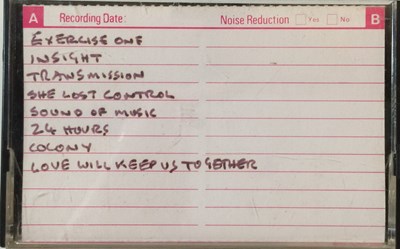 A Recording Date: Noise Reduction Yes No B
EXERCISE ONE
INSIGHT
TRANSMISSION
SHE LOST CONTROL
SOUND OF MUSIC
24 HOURS
COLONY
LOVE WILL KEEP US TOGETHER